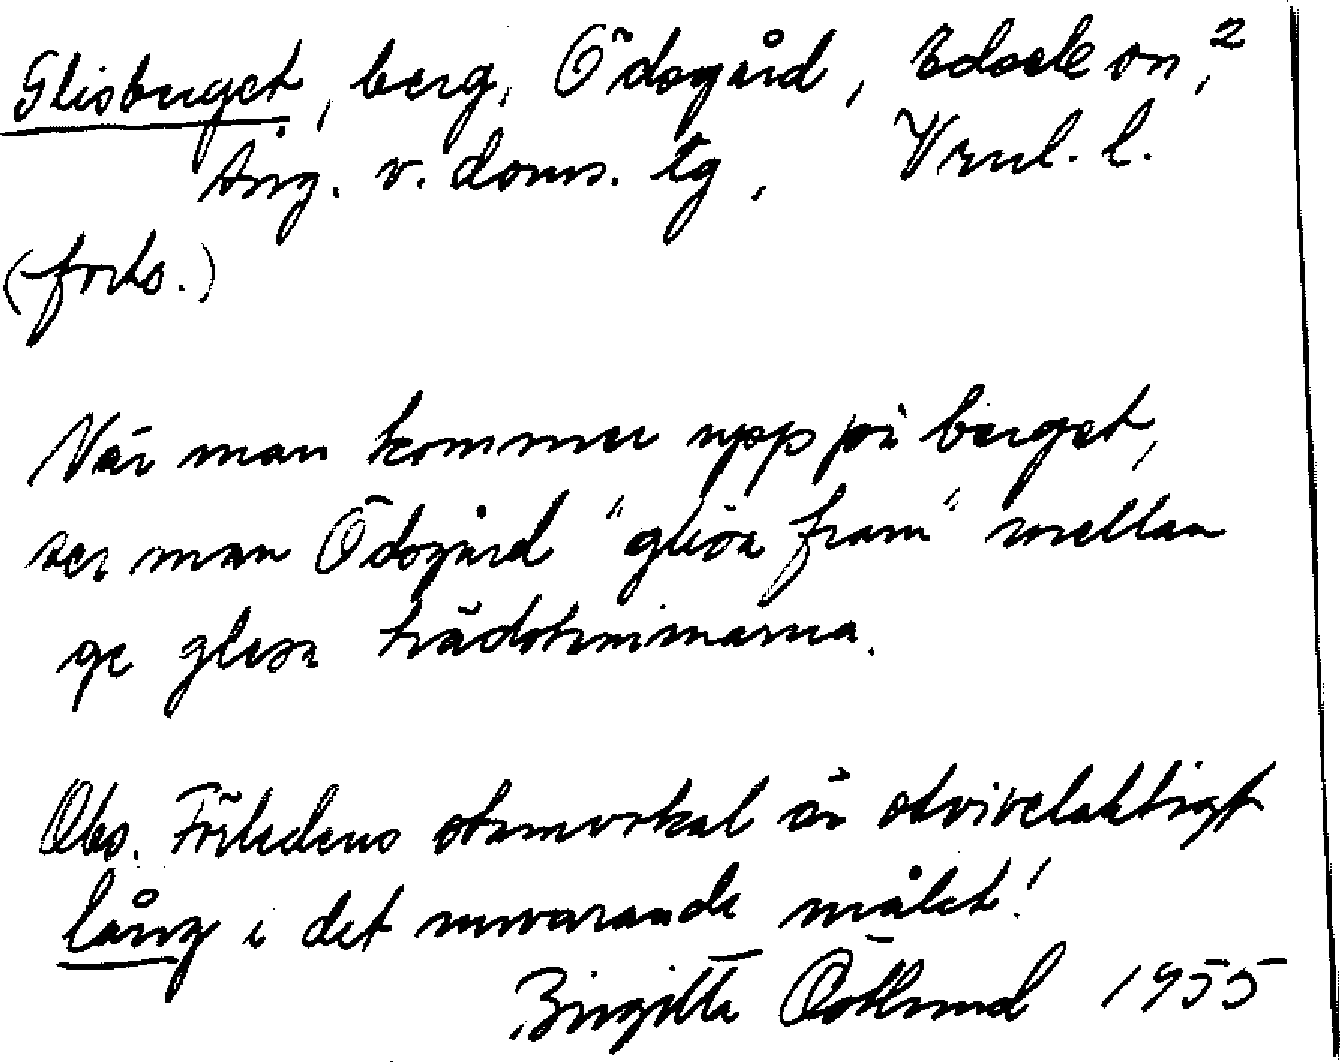 Glisberget, berg, Ödsgård, Edsele sn, 2
Ång. v. doms. tg, Vrnl. l.
(forts.)
När man kommer upp på berget,
ser man Ödsgård "glisa fram" mellan
ge glesa trädstammarna.
Obs. Förledens stamvokal är otvivelaktigt
lång i det nuvarande målet!
Birgitta Östlund 1955